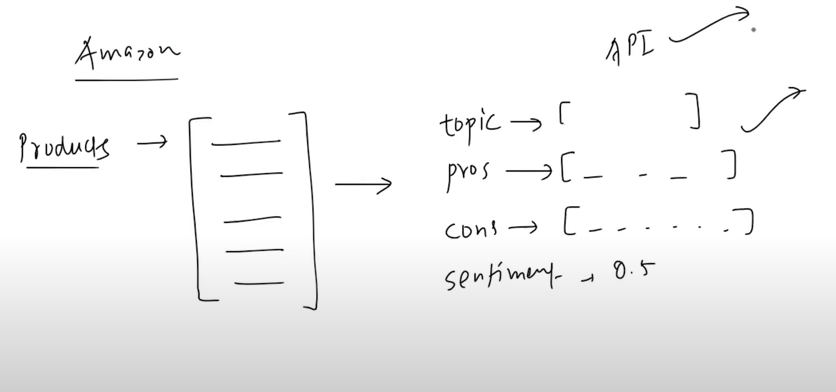 Amazon
API
Products →
topic → [ ]
pros → [ _ - _ ]
cons → [ - - - . . . ]
sentiment → 0.5